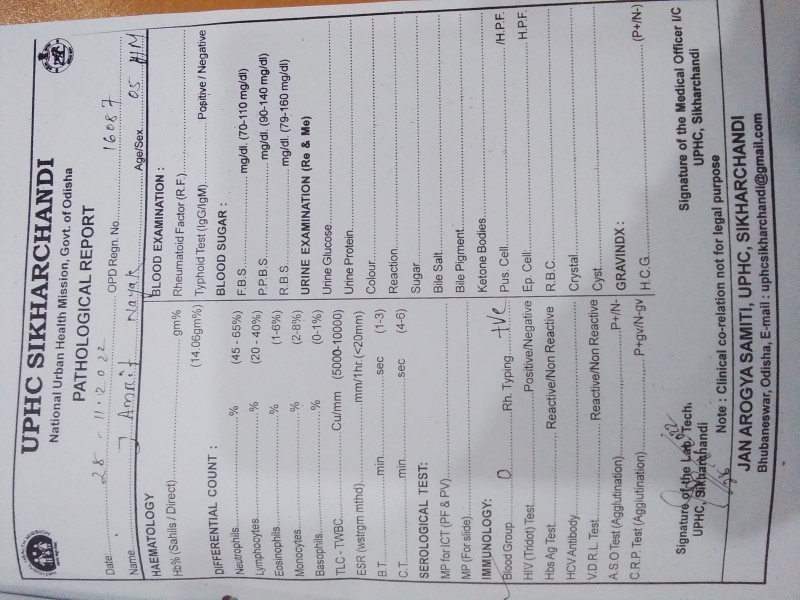 UPHC SIKHARCHANDI
National Urban Health Mission, Govt. of Odisha
PATHOLOGICAL REPORT
Date 28 - 11.2022 OPD Regn. No 16087
Name Amrit Nayak Age/Sex. 05 / M
HAEMATOLOGY
Hb% (Sahils / Direct) gm%
(14.06gm%)
DIFFERENTIAL COUNT :
Neutrophils % (45 - 65%)
Lymphocytes % (20 - 40%)
Eosinophils % (1-6%)
Monocytes % (2-8%)
Basophils % (0-1%)
TLC - TWBC Cu/mm (5000-10000)
ESR (wstrgm mthd) mm/1hr.(<20mm)
B.T. min sec (1-3)
C.T. min sec (4-6)
SEROLOGICAL TEST:
MP for ICT (PF & PV)
MP (For slide)
IMMUNOLOGY:
Blood Group O Rh. Typing +ve
HIV (Tridot) Test Positive/Negative
Hbs Ag Test Reactive/Non Reactive
HCV Antibody
V.D.R.L Test Reactive/Non Reactive
A.S.O Test (Agglutination) P+/N-
C.R.P Test (Agglutination) P+gv/N-gv
BLOOD EXAMINATION :
Rheumatoid Factor (R.F.)
Typhoid Test (IgG/IgM) Positive / Negative
BLOOD SUGAR :
F.B.S. mg/dl. (70-110 mg/dl)
P.P.B.S. mg/dl. (90-140 mg/dl)
R.B.S. mg/dl (79-160 mg/dl)
URINE EXAMINATION (Re & Me)
Urine Glucose
Urine Protein
Colour
Reaction
Sugar
Bile Salt
Bile Pigment
Ketone Bodies
Pus. Cell /H.P.F.
Ep. Cell H.P.F.
R.B.C.
Crystal
Cyst
GRAVINDX :
H.C.G. (P+/N-)
Signature of the Lab. Tech.
UPHC, Sikharchandi
Signature of the Medical Officer I/C
UPHC, Sikharchandi
Note : Clinical co-relation not for legal purpose
JAN AROGYA SAMITI, UPHC, SIKHARCHANDI
Bhubaneswar, Odisha, E-mail : uphcsikharchandi@gmail.com